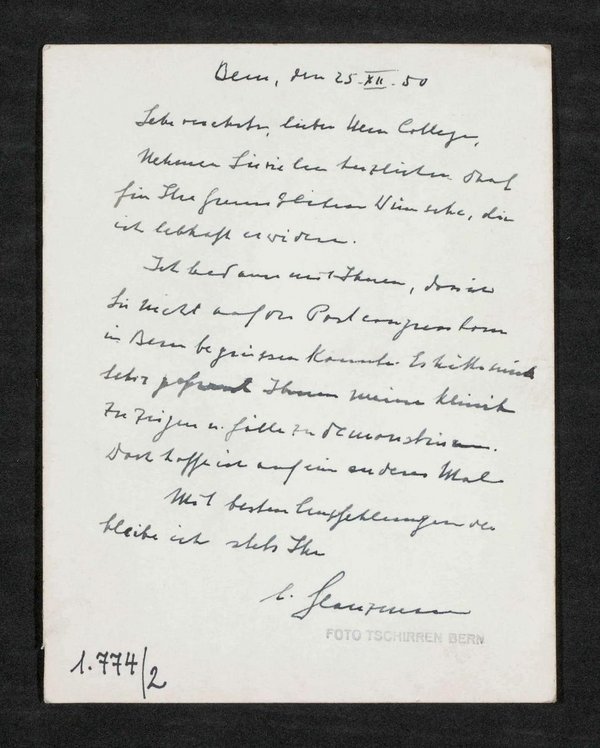 Bern, den 25. XII. 50
Sehr verehrter, lieber Herr College,
Nehmen Sie vielen herzlichen Dank
für Ihre freundlichen Wünsche, die
ich lebhaft erwidere.
Ich bedaure mit Ihnen, dass ich
Sie nicht auf der Postcongresstour
in Bern begrüssen konnte. Es hätte mich
sehr gefreut Ihnen meine Klinik
zu zeigen u. Fälle zu demonstrieren.
Doch hoffe ich auf ein anderes Mal.
Mit besten Empfehlungen
bleibe ich stets Ihr
E. Glanzmann
FOTO TSCHIRREN BERN
1.774/2